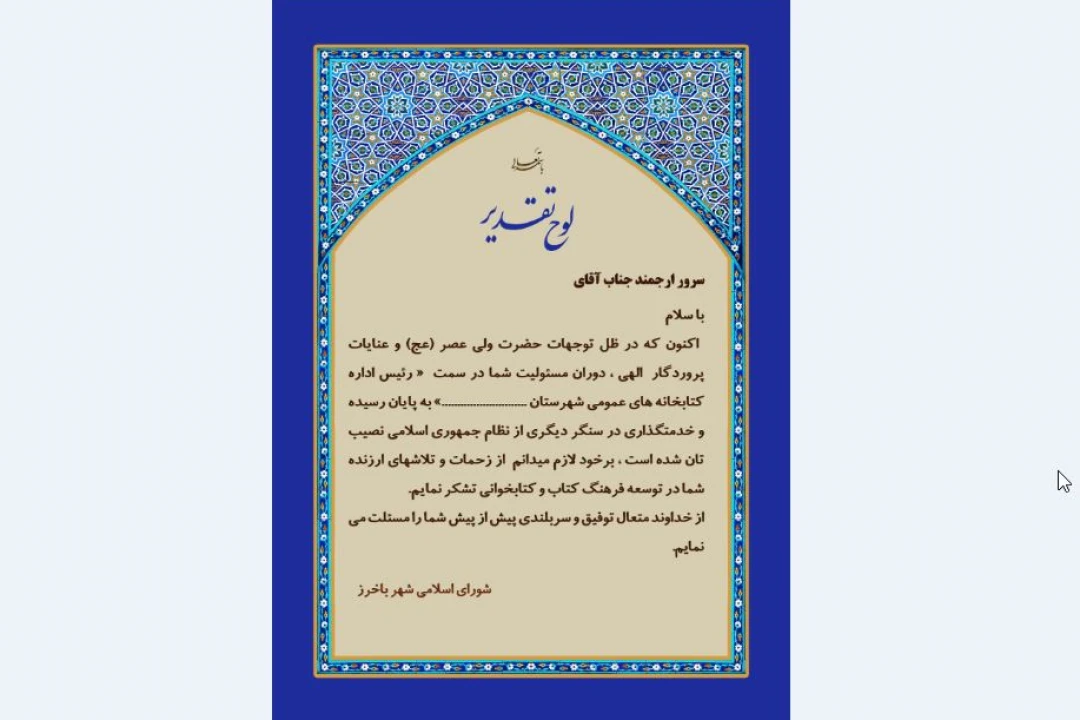 باسمه تعالی
لوح تقدیر
سرور ارجمند جناب آقای
با سلام
اکنون که در ظل توجهات حضرت ولی عصر (عج) و عنایات
پروردگار الهی ، دوران مسئولیت شما در سمت « رئیس اداره
کتابخانه های عمومی شهرستان ............................» به پایان رسیده
و خدمتگذاری در سنگر دیگری از نظام جمهوری اسلامی نصیب
تان شده است ، برخود لازم میدانم از زحمات و تلاشهای ارزنده
شما در توسعه فرهنگ کتاب و کتابخوانی تشکر نمایم.
از خداوند متعال توفیق و سربلندی پیش از پیش شما را مسئلت می
نمایم.
شورای اسلامی شهر باخرز